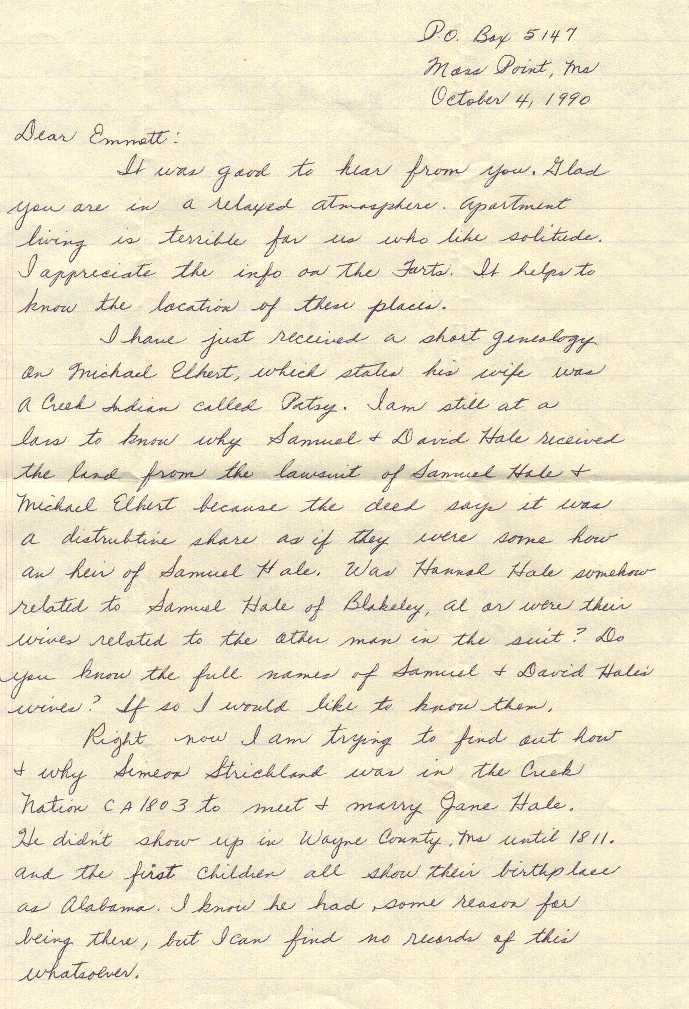 P.O. Box 5147
Moss Point, Ms
October 4, 1990
Dear Emmett:
It was good to hear from you. Glad
you are in a relaxed atmosphere. Apartment
living is terrible for us who like solitude.
I appreciate the info on the Forts. It helps to
know the location of these places.
I have just received a short genealogy
on Michael Elhert, which states his wife was
a Creek Indian called Patsy. I am still at a
loss to know why Samuel & David Hale received
the land from the lawsuit of Samuel Hale &
Michael Elhert because the deed says it was
a distrubtive share as if they were some how
an heir of Samuel Hale. Was Hannah Hale somehow
related to Samuel Hale of Blakeley, Al or were their
wives related to the other man in the suit? Do
you know the full names of Samuel & David Hale's
wives? If so I would like to know them.
Right now I am trying to find out how
& why Simeon Strickland was in the Creek
Nation CA 1803 to meet & marry Jane Hale.
He didn't show up in Wayne County, Ms until 1811.
and the first children all show their birthplace
as Alabama. I know he had some reason for
being there, but I can find no records of this
whatsoever.